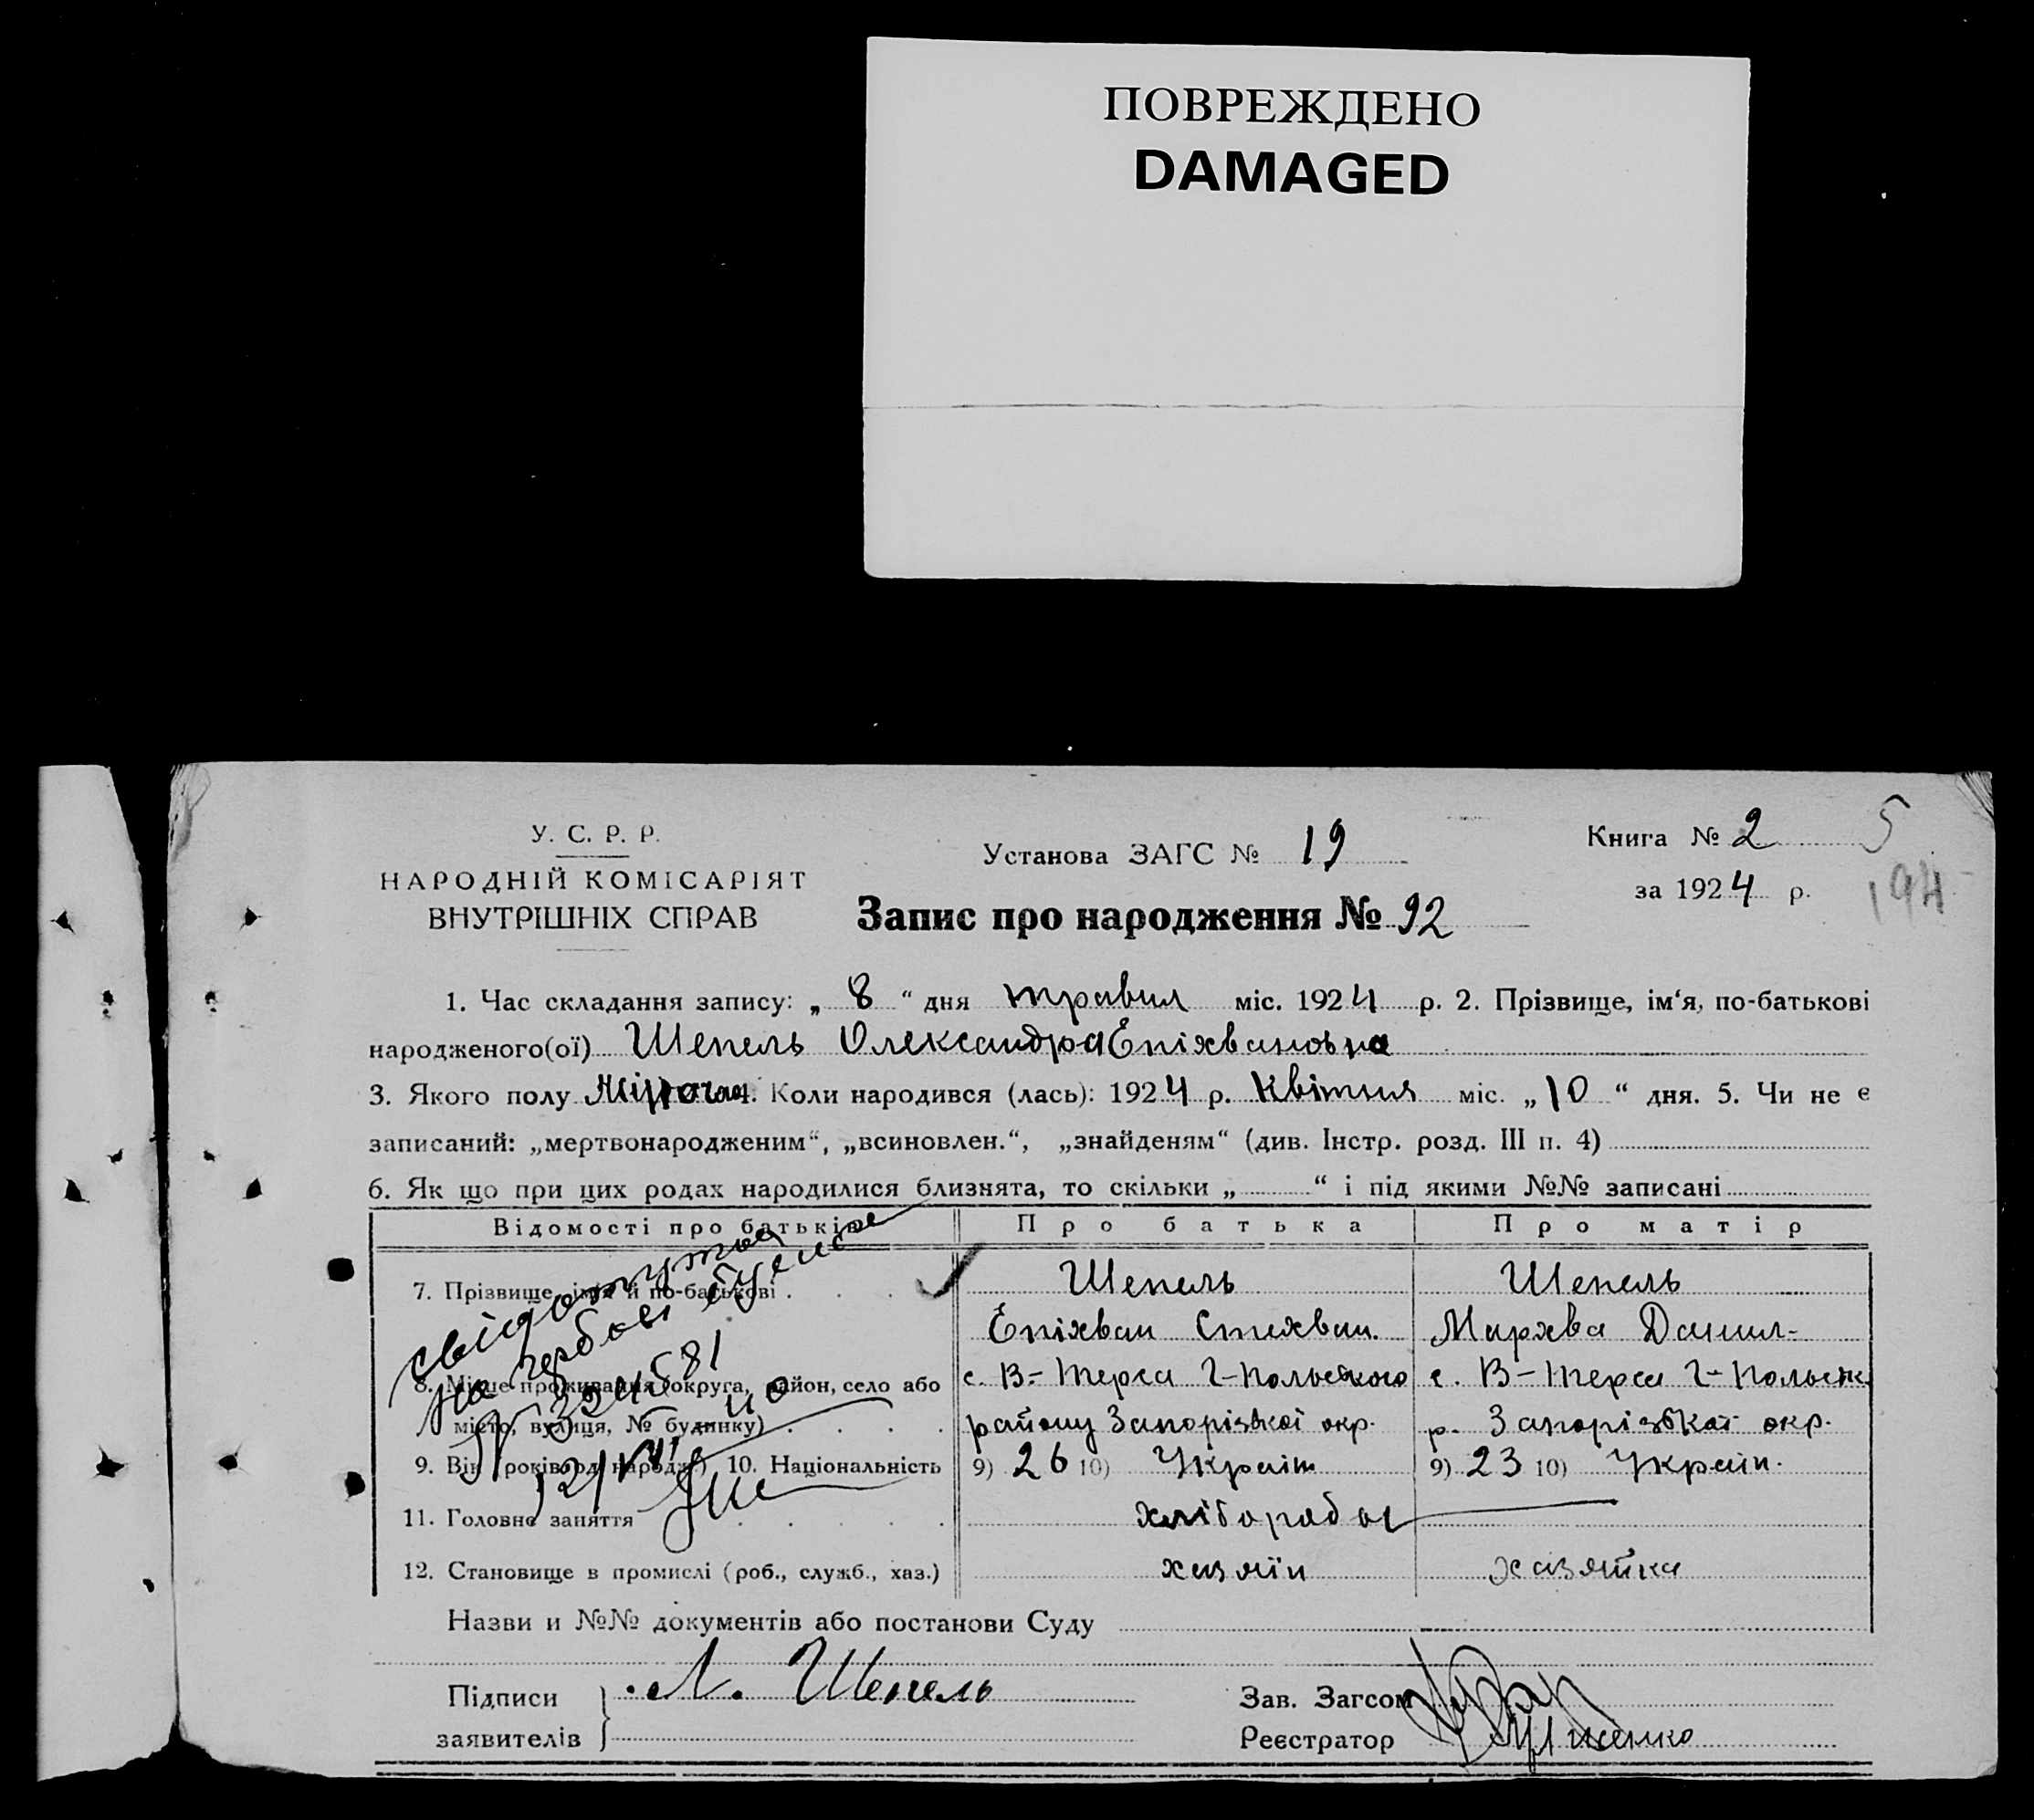 ПОВРЕЖДЕНО
DAMAGED
У. С. Р. Р.
НАРОДНІЙ КОМІСАРІЯТ
ВНУТРІШНІХ СПРАВ
Установа ЗАГС № 19
Книга № 2
5
за 1924 р.
194
Запис про народження № 92
1. Час складання запису: „ 8 “ дня травня міс. 1924 р. 2. Прізвище, ім‘я, по-батькові
народженого(ої) Шепель Олександра Епіхвановна
3. Якого полу жіночa 4. Коли народився (лась): 1924 р. Квітня міс. „ 10 “ дня. 5. Чи не є
записаний: „мертвонародженим“, „всиновлен.“, „знайденям“ (див. Інстр. розд. III п. 4)
6. Як що при цих родах народилися близнята, то скільки „ “ і під якими №№ записані
Відомості про батьків Про батька Про матір
7. Прізвище, ім‘я й по-батькові Шепель Шепель
Епіхван Стехван. Мархва Данил-
8. Місце проживання (округа, район, село або с. В-Терса Г-Польського с. В-Терса Г-Польськ.
місто, вулиця, № будинку) району Запорізької окр. р. Запорізької окр.
9. Вік (років од народж.) 10. Національність 9) 26 10) Україн 9) 23 10) Україн.
11. Головне заняття хлібороб
12. Становище в промислі (роб., служб., хаз.) хазяїн хазяйка
Назви и №№ документів або постанови Суду
Підписи заявителів Л. Шепель
Зав. Загсом
Реєстратор